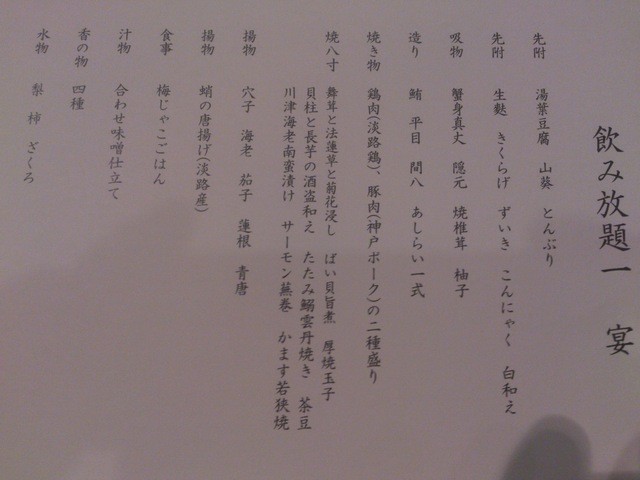 飲み放題一 宴
先附 湯葉豆腐 山葵 とんぶり
先附 生麩 きくらげ ずいき こんにゃく 白和え
吸物 蟹身真丈 隠元 焼椎茸 柚子
造り 鮪 平目 間八 あしらい一式
焼き物 鶏肉(淡路鶏)、豚肉(神戸ポーク)の二種盛り
焼八寸 舞茸と法蓮草と菊花浸し ばい貝旨煮 厚焼玉子
貝柱と長芋の酒盗和え たたみ鰯雲丹焼き 茶豆
川津海老南蛮漬け サーモン蕪巻 かます若狭焼
揚物 穴子 海老 茄子 蓮根 青唐
揚物 蛸の唐揚げ(淡路産)
食事 梅じゃこごはん
汁物 合わせ味噌仕立て
香の物 四種
水物 梨 柿 ざくろ